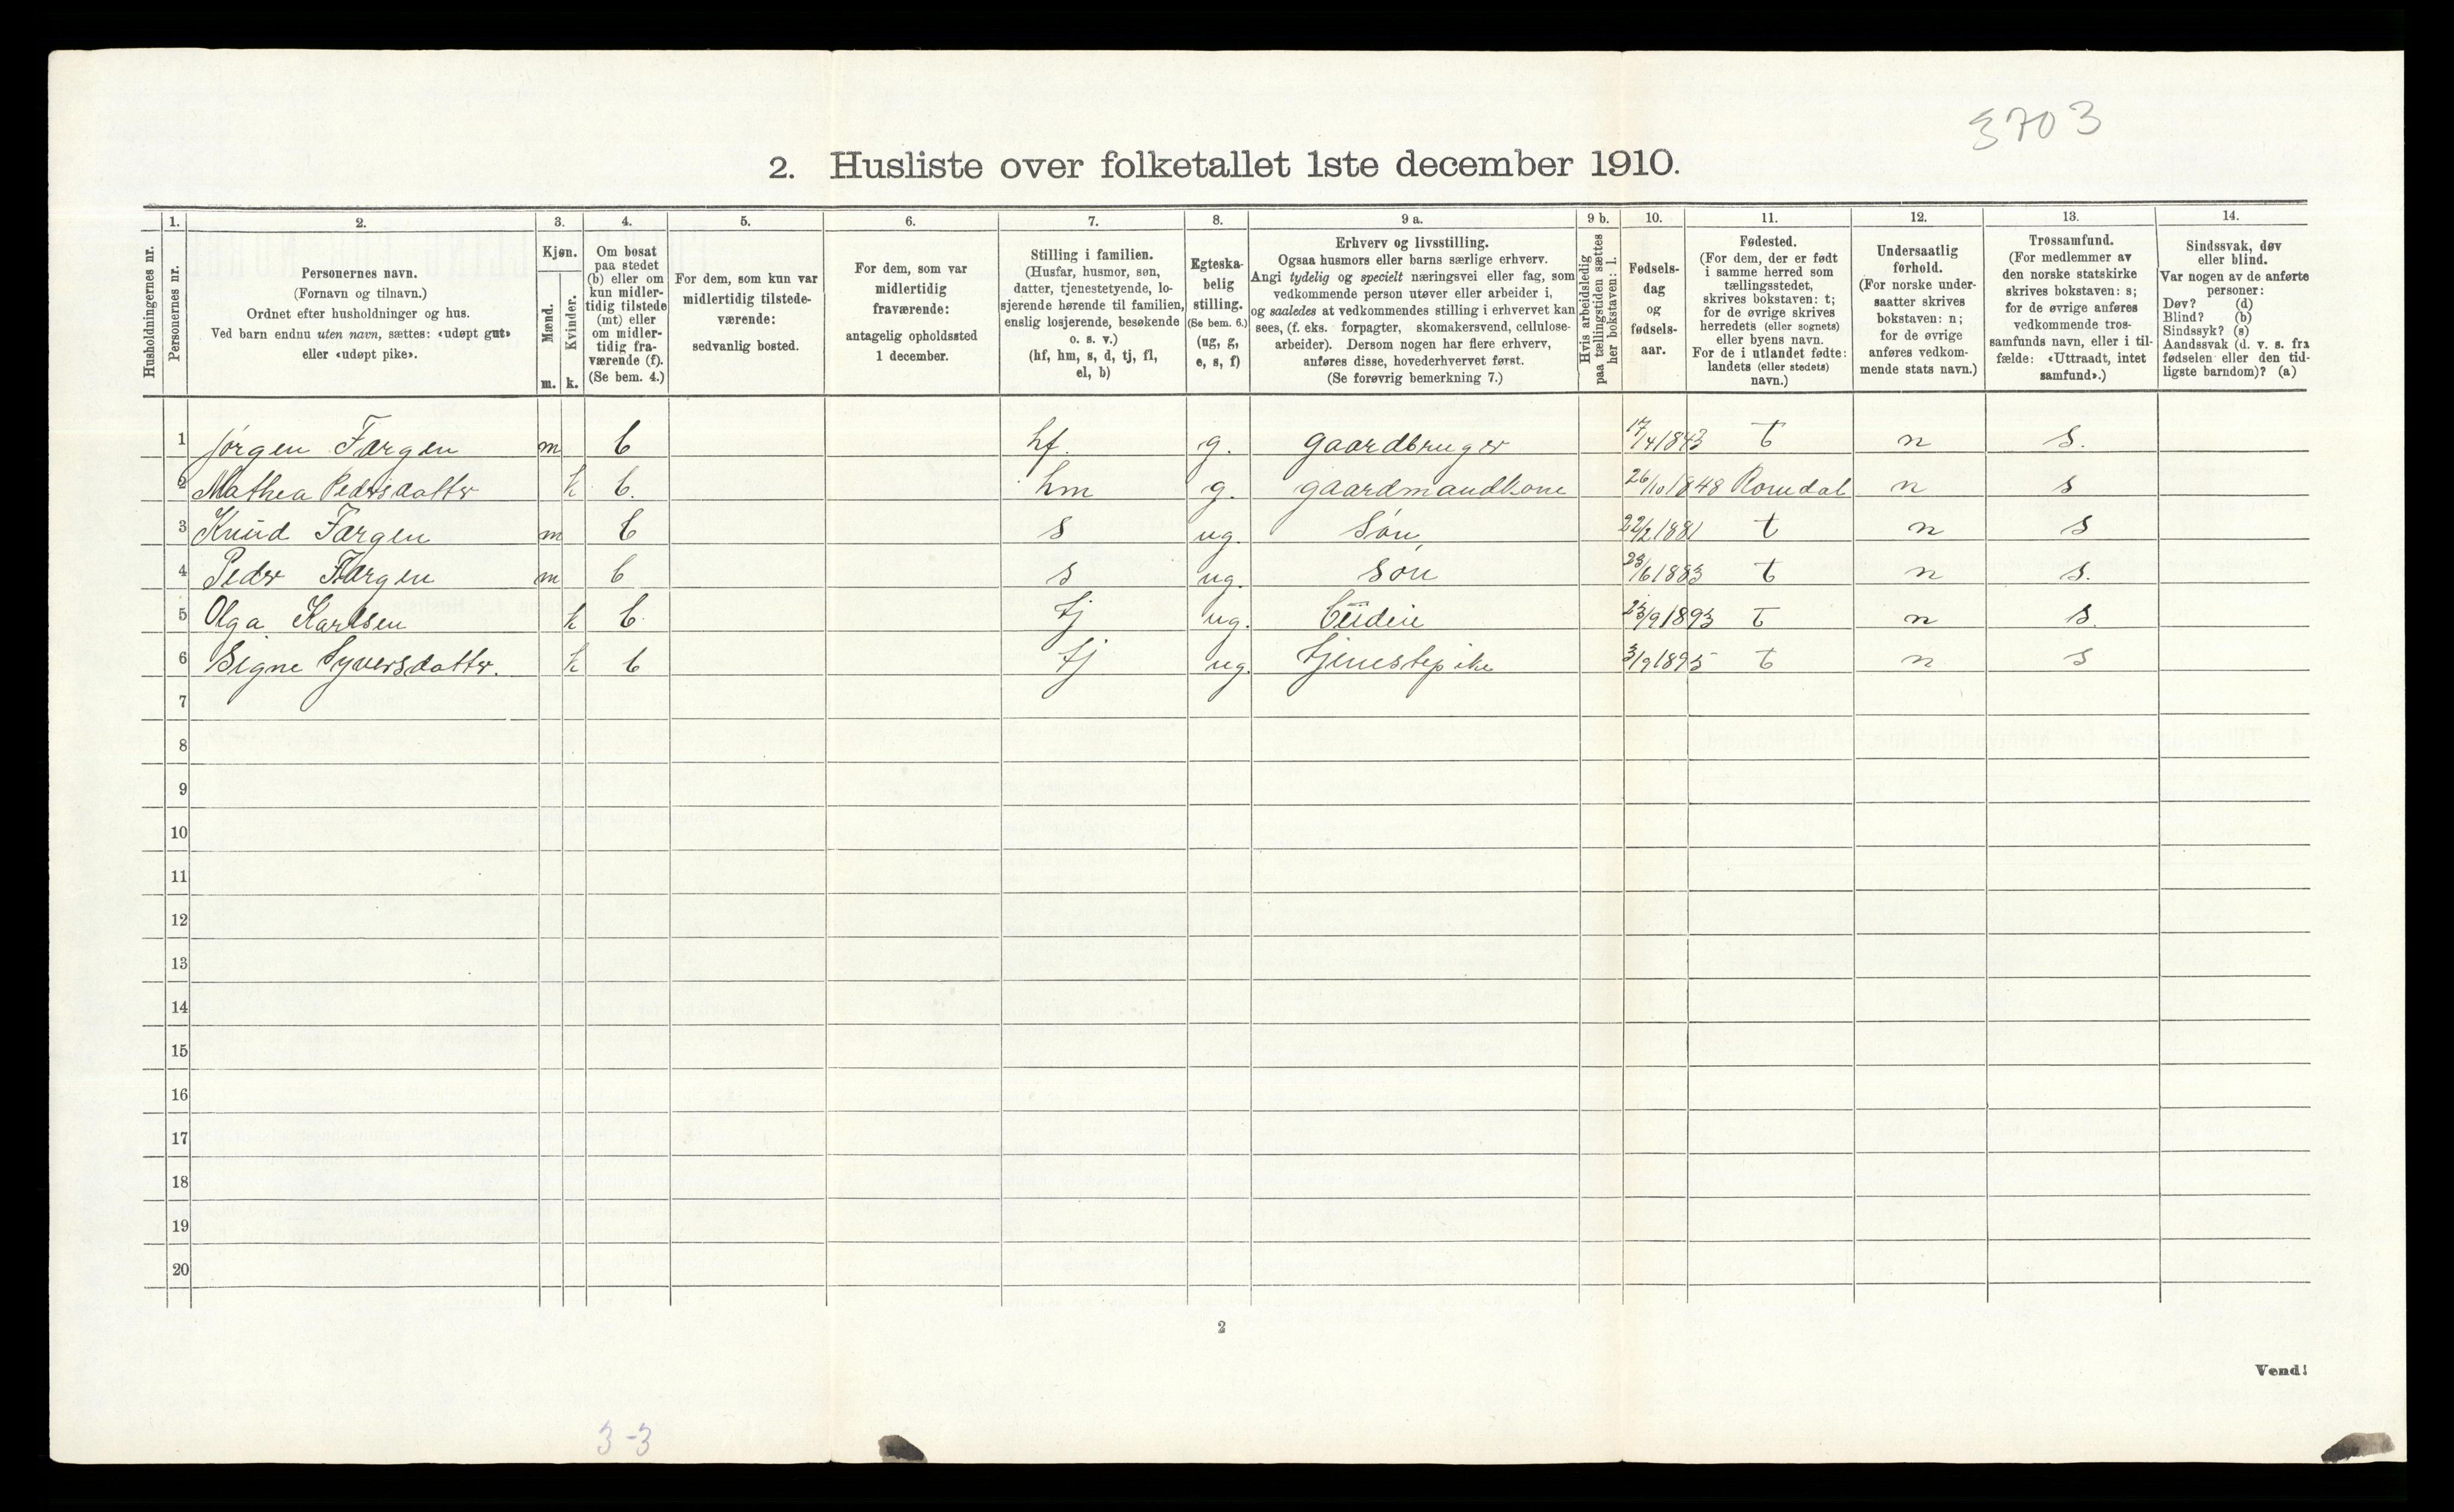 3703
2. Husliste over folketallet 1ste december 1910.
Husholdningernes nr.
1.
Personernes nr.
2.
Personernes navn.
(Fornavn og tilnavn.)
Ordnet efter husholdninger og hus.
Ved barn endnu uten navn, sættes: «udøpt gut»
eller «udøpt pike».
3.
Kjøn.
Mænd.
Kvinder.
m. k.
4.
Om bosat
paa stedet
(b) eller om
kun midler-
tidig tilstede
(mt) eller
om midler-
tidig fra-
værende (f).
(Se bem. 4.)
5.
For dem, som kun var
midlertidig tilstede-
værende:
sedvanlig bosted.
6.
For dem, som var
midlertidig
fraværende:
antagelig opholdssted
1 december.
7.
Stilling i familien.
(Husfar, husmor, søn,
datter, tjenestetyende, lo-
sjerende hørende til familien,
enslig losjerende, besøkende
o. s. v.)
(hf, hm, s, d, tj, fl,
el, b)
8.
Egteska-
belig
stilling.
(Se bem. 6.)
(ug, g,
e, s, f)
9 a.
Erhverv og livsstilling.
Ogsaa husmors eller barns særlige erhverv.
Angi tydelig og specielt næringsvei eller fag, som
vedkommende person utøver eller arbeider i,
og saaledes at vedkommendes stilling i erhvervet kan
sees, (f. eks. forpagter, skomakersvend, cellulose-
arbeider). Dersom nogen har flere erhverv,
anføres disse, hovederhvervet først.
(Se forøvrig bemerkning 7.)
9 b.
Hvis arbeidsledig
paa tællingstiden sættes
her bokstaven: l.
10.
Fødsels-
dag
og
fødsels-
aar.
11.
Fødested.
(For dem, der er født
i samme herred som
tællingsstedet,
skrives bokstaven: t;
for de øvrige skrives
herredets (eller sognets)
eller byens navn.
For de i utlandet fødte:
landets (eller stedets)
navn.)
12.
Undersaatlig
forhold.
(For norske under-
saatter skrives
bokstaven: n;
for de øvrige
anføres vedkom-
mende stats navn.)
13.
Trossamfund.
(For medlemmer av
den norske statskirke
skrives bokstaven: s;
for de øvrige anføres
vedkommende tros-
samfunds navn, eller i til-
fælde: «Uttraadt, intet
samfund».)
14.
Sindssvak, døv
eller blind.
Var nogen av de anførte
personer:
Døv? (d)
Blind? (b)
Sindssyk? (s)
Aandssvak (d. v. s. fra
fødselen eller den tid-
ligste barndom)? (a)
1 Jørgen Færgen m b hf. g. gaardbruger 17/4 1843 t n s.
2 Mathea Pedersdatter k b. hm g. gaardmandkone 26/10 1848 Romedal n s
3 Knud Færgen m b s ug. Søn, 22/2 1881 t n s
4 Peder Færgen m b s ug. søn 23/6 1883 t n s.
5 Olga Karlsen k b. tj ug. Budeie 23/9 1893 t n s.
6 Signe Syversdatter. k b tj ug. tjenestepike 3/9 1895 t n s
7
8
9
10
11
12
13
14
15
16
17
18
19
20
2
Vend!
3-3